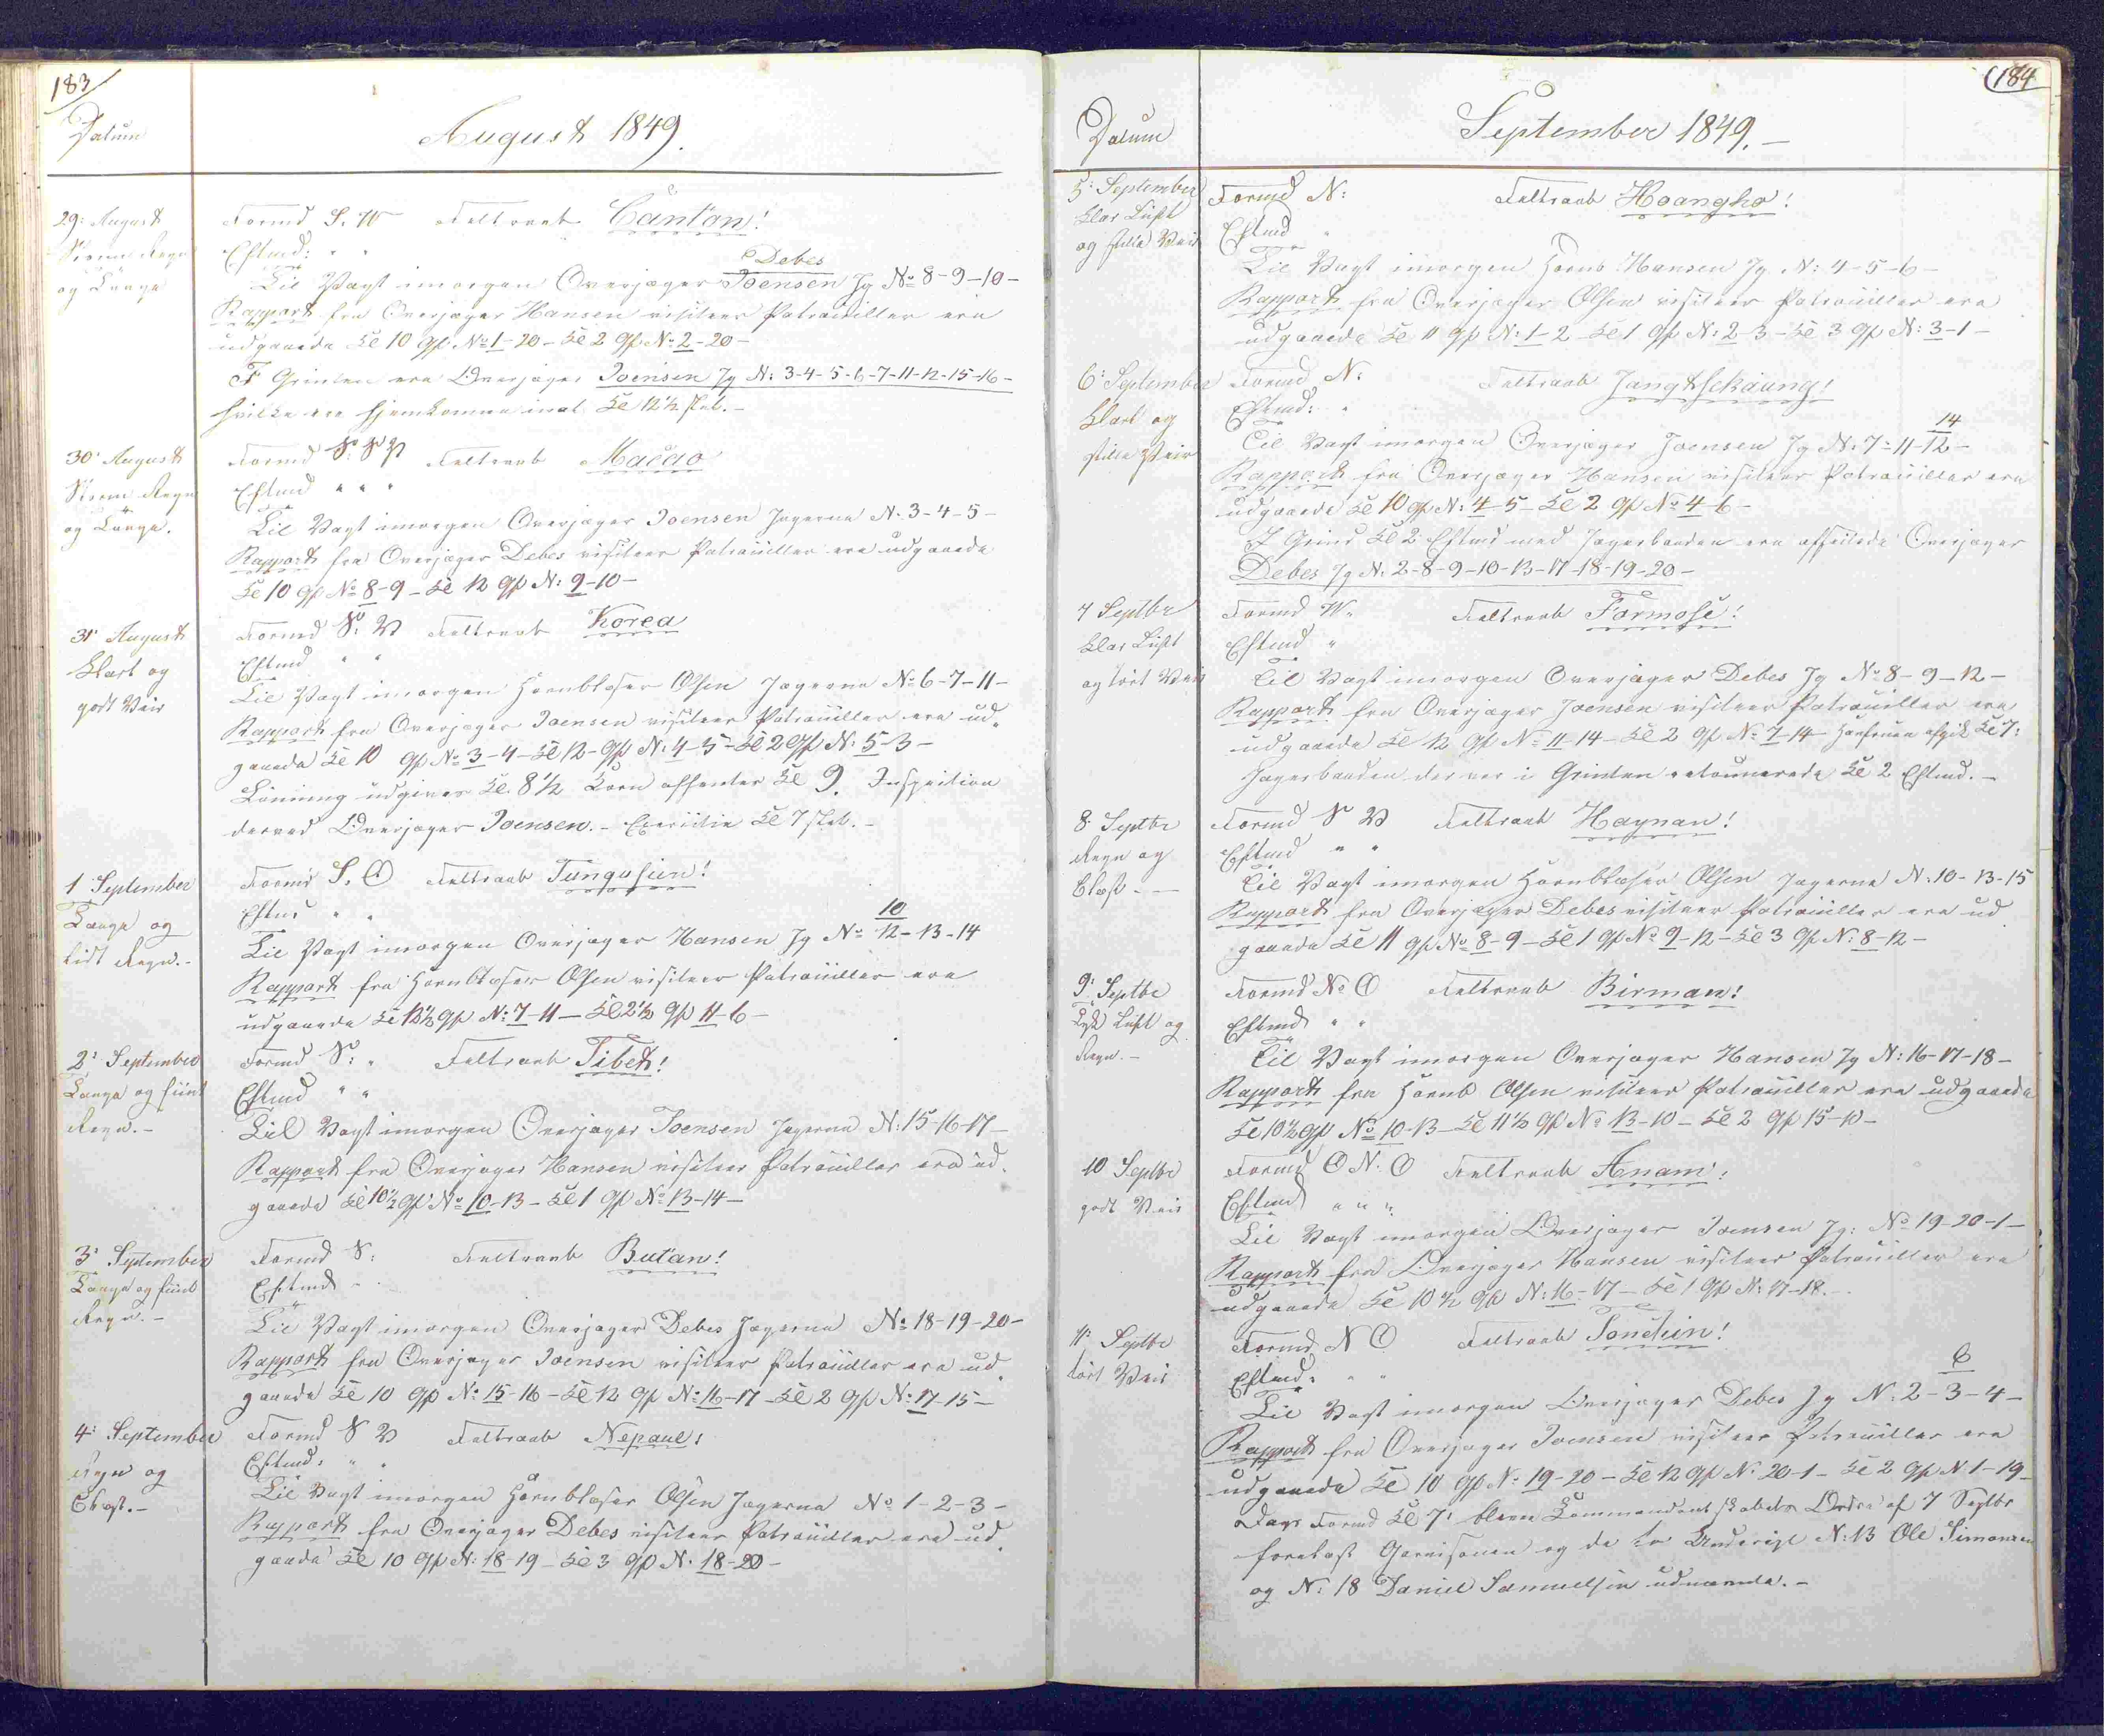 183
Datum
August 1849.
29: August
Storm Regn
og Taage
Formd S. W Feltraab Canton!
Eftmd: " "
Debes
Til Vagt imorgen Overjæger Joensen Jg No 8-9-10-
Rapport fra Overjæger Hansen visiteer Patrouiller ere
udgaaede Kl 10 gp No 1-20- Kl 2 gp No 2-20-
Overjæger Joensen Jg N: 3-4-5-6-7-11-12-15-16-
hvilke ere hjemkomne inat Kl 12½ slet.-
30' August
Storm Regn
og Taage.
Formd S: S V Feltraab Macao
Eftmd " " "
Til Vagt imorgen Overjæger Joensen Jægerne N. 3-4-5-
Rapport fra Overjæger Debes visiteer Patrouiller ere udgaaede
Kl 10 gp No 8-9- Kl 12 gp N: 9-10-
31' August
Klart og
godt Veir
Formd S: V Feltraab Korea
Eftmd " "
Til Vagt imorgen Hornblæser Olsen Jægerne No 6-7-11-
Rapport fra Overjæger Joensen visiteer Patrouiller ere ud-
gaaede Kl 10 gp No 3-4- Kl 12- gp N: 4-5- Kl 2 gp N: 5-3-
Lönning udgives Kl. 8½ Korn afhentes Kl 9. Inspection
derved Overjæger Joensen.- Exercitie Kl 7 slet.-
1 September
Taage og
lidt Regn.-
Formd S. O Feltraab Tungusien!
Eftmd " "
10
Til Vagt imorgen Overjæger Hansen Jg No 12-13-14
Rapport fra Hornblæser Olsen visiteer Patrouiller ere
udgaaede Kl 12½ gp N: 7-11- Kl 2½ gp 11-6-
2: September
Taage og fiint
Regn.-
Formd S: " Feltraab Tibet!
Eftmd " "
Til Vagt imorgen Overjæger Joensen Jægerne N: 15-16-17-
Rapport fra Overjæger Hansen visiteer Patrouiller ere ud-
gaaede Kl 10½ gp No 10-13- Kl 1 gp No 13-14-
3: September
Taage og fiint
Regn.-
Formd S: Feltraab Butan!
Eftmd "
Til Vagt imorgen Overjæger Debes Jægerne No 18-19-20-
Rapport fra Overjæger Joensen visiteer Patrouiller ere ud-
gaaede Kl 10 gp No 15-16- Kl 12 gp No 16-17- Kl 2 gp No 17-15-
4: September
Regn og
Blæst.-
Formd S V Feltraab Nepaul!
Eftmd: " "
Til Vagt imorgen Hornblæser Olsen Jægerne No 1-2-3-
Rapport fra Overjæger Debes visiteer Patrouiller ere ud-
gaaede Kl 10 gp N: 18-19- Kl 3 gp N. 18-20-
184
Datum
September 1849.-
5: September
Klar Luft
og stille Veir
Formd N: Feltraab Hoangho!
Eftmd "
Til Vagt imorgen Hornb: Hansen Jg N: 4-5-6-
Rapport fra Overjæger Olsen visiteer Patrouiller ere
udgaaede Kl 11 gp N: 1-2- Kl 1 gp N: 2-3- Kl 3 gp N: 3-1-
6: September
Klart og
stille Veir
Formd N: Feltraab Jangtsekaung!
Eftmd: "
14
Til Vagt imorgen Overjæger Joensen Jg N: 7-11-12-
Rapport fra Overjæger Hansen visiteer Patrouiller ere
udgaaede Kl 10 gp N: 4-5- Kl 2 gp No 4-6-
Kl 2 Eftmd med Jægerbaaden ere affeilede Overjæger
Debes Jg N: 2-8-9-10-13-17-18-19-20-
7 Septbr
Klar Luft
og tört Veir
Formd W. Feltraab Formose!
Eftmd "
Til Vagt imorgen Overjæger Debes Jg No 8-9-12-
Rapport fra Overjæger Joensen visiteer Patrouiller ere
udgaaede Kl 12 gp No 11-14- Kl 2 gp No 7-14- afgik Kl 7:
Jægerbaaden der var i Grinden retournerede Kl 2 Eftmd.-
8. Septbr
Regn og
Blæst.--
Formd S V Feltraab Haynan!
Eftmd " "
Til Vagt imorgen Hornblæser Olsen Jægerne N: 10-13-15
Rapport fra Overjæger Debes visiteer Patrouiller ere ud
gaaede Kl 11 gp No 8-9- Kl 1 gp No 9-12- Kl 3 gp N: 8-12-
9: Septbr
Tyk Luft og
Regn.-
Formd N: O Feltraab Birman!
Eftmd " "
Til Vagt imorgen Overjæger Hansen Jg N: 16-17-18-
Rapport fra Hornb Olsen visiteer Patrouiller ere udgaaede
Kl 10½ gp No 10-13- Kl 11½ gp No 13-10- Kl 2 gp 15-10-
10 Septbr
godt Veir
Formd O N: O Feltraab Anam!
Eftmd " " "
Til Vagt imorgen Overjæger Joensen Jg: No 19-20-1-
Rapport fra Overjæger Hansen visiteer Patrouiller ere
udgaaede Kl 10½ gp N: 16-17- Kl 1 gp N: 17-18.-
11: Septbr
tört Veir
Formd N O Feltraab Tonchin!
Eftmd: " "
6
Til Vagt imorgen Overjæger Debes Jg N: 2-3-4-
Rapport fra Overjæger Joensen visiteer Patrouiller ere
udgaaede Kl 10 gp N: 19-20- Kl 12 gp N: 20-1- Kl 2 gp N 1-19-
Dags Formd Kl 7: blev Commandantskabets Ordre af 7 Septbr
forelæst Garnisonen og de to Underigl N: 13 Ole Simonsen
og N: 18 Daniel Samuelsen udnævnte.-